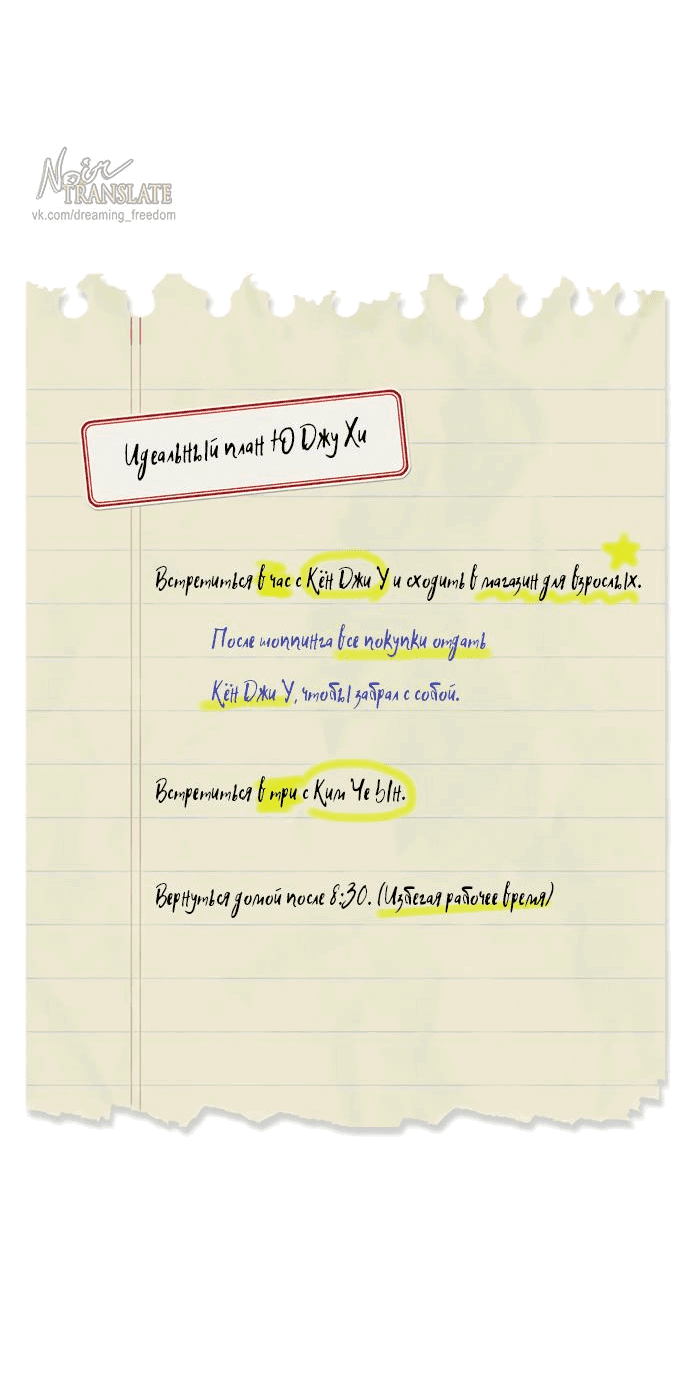 Noir
TRANSLATE
vk.com/dreaming_freedom
Идеальный план Ю Джу Хи
Встретиться в час с Кён Джи У и сходить в магазин для взрослых.
После шоппинга все покупки отдать
Кён Джи У, чтобы забрал с собой.
Встретиться в три с Ким Че Ын.
Вернуться домой после 8:30. (Избегая рабочее время)